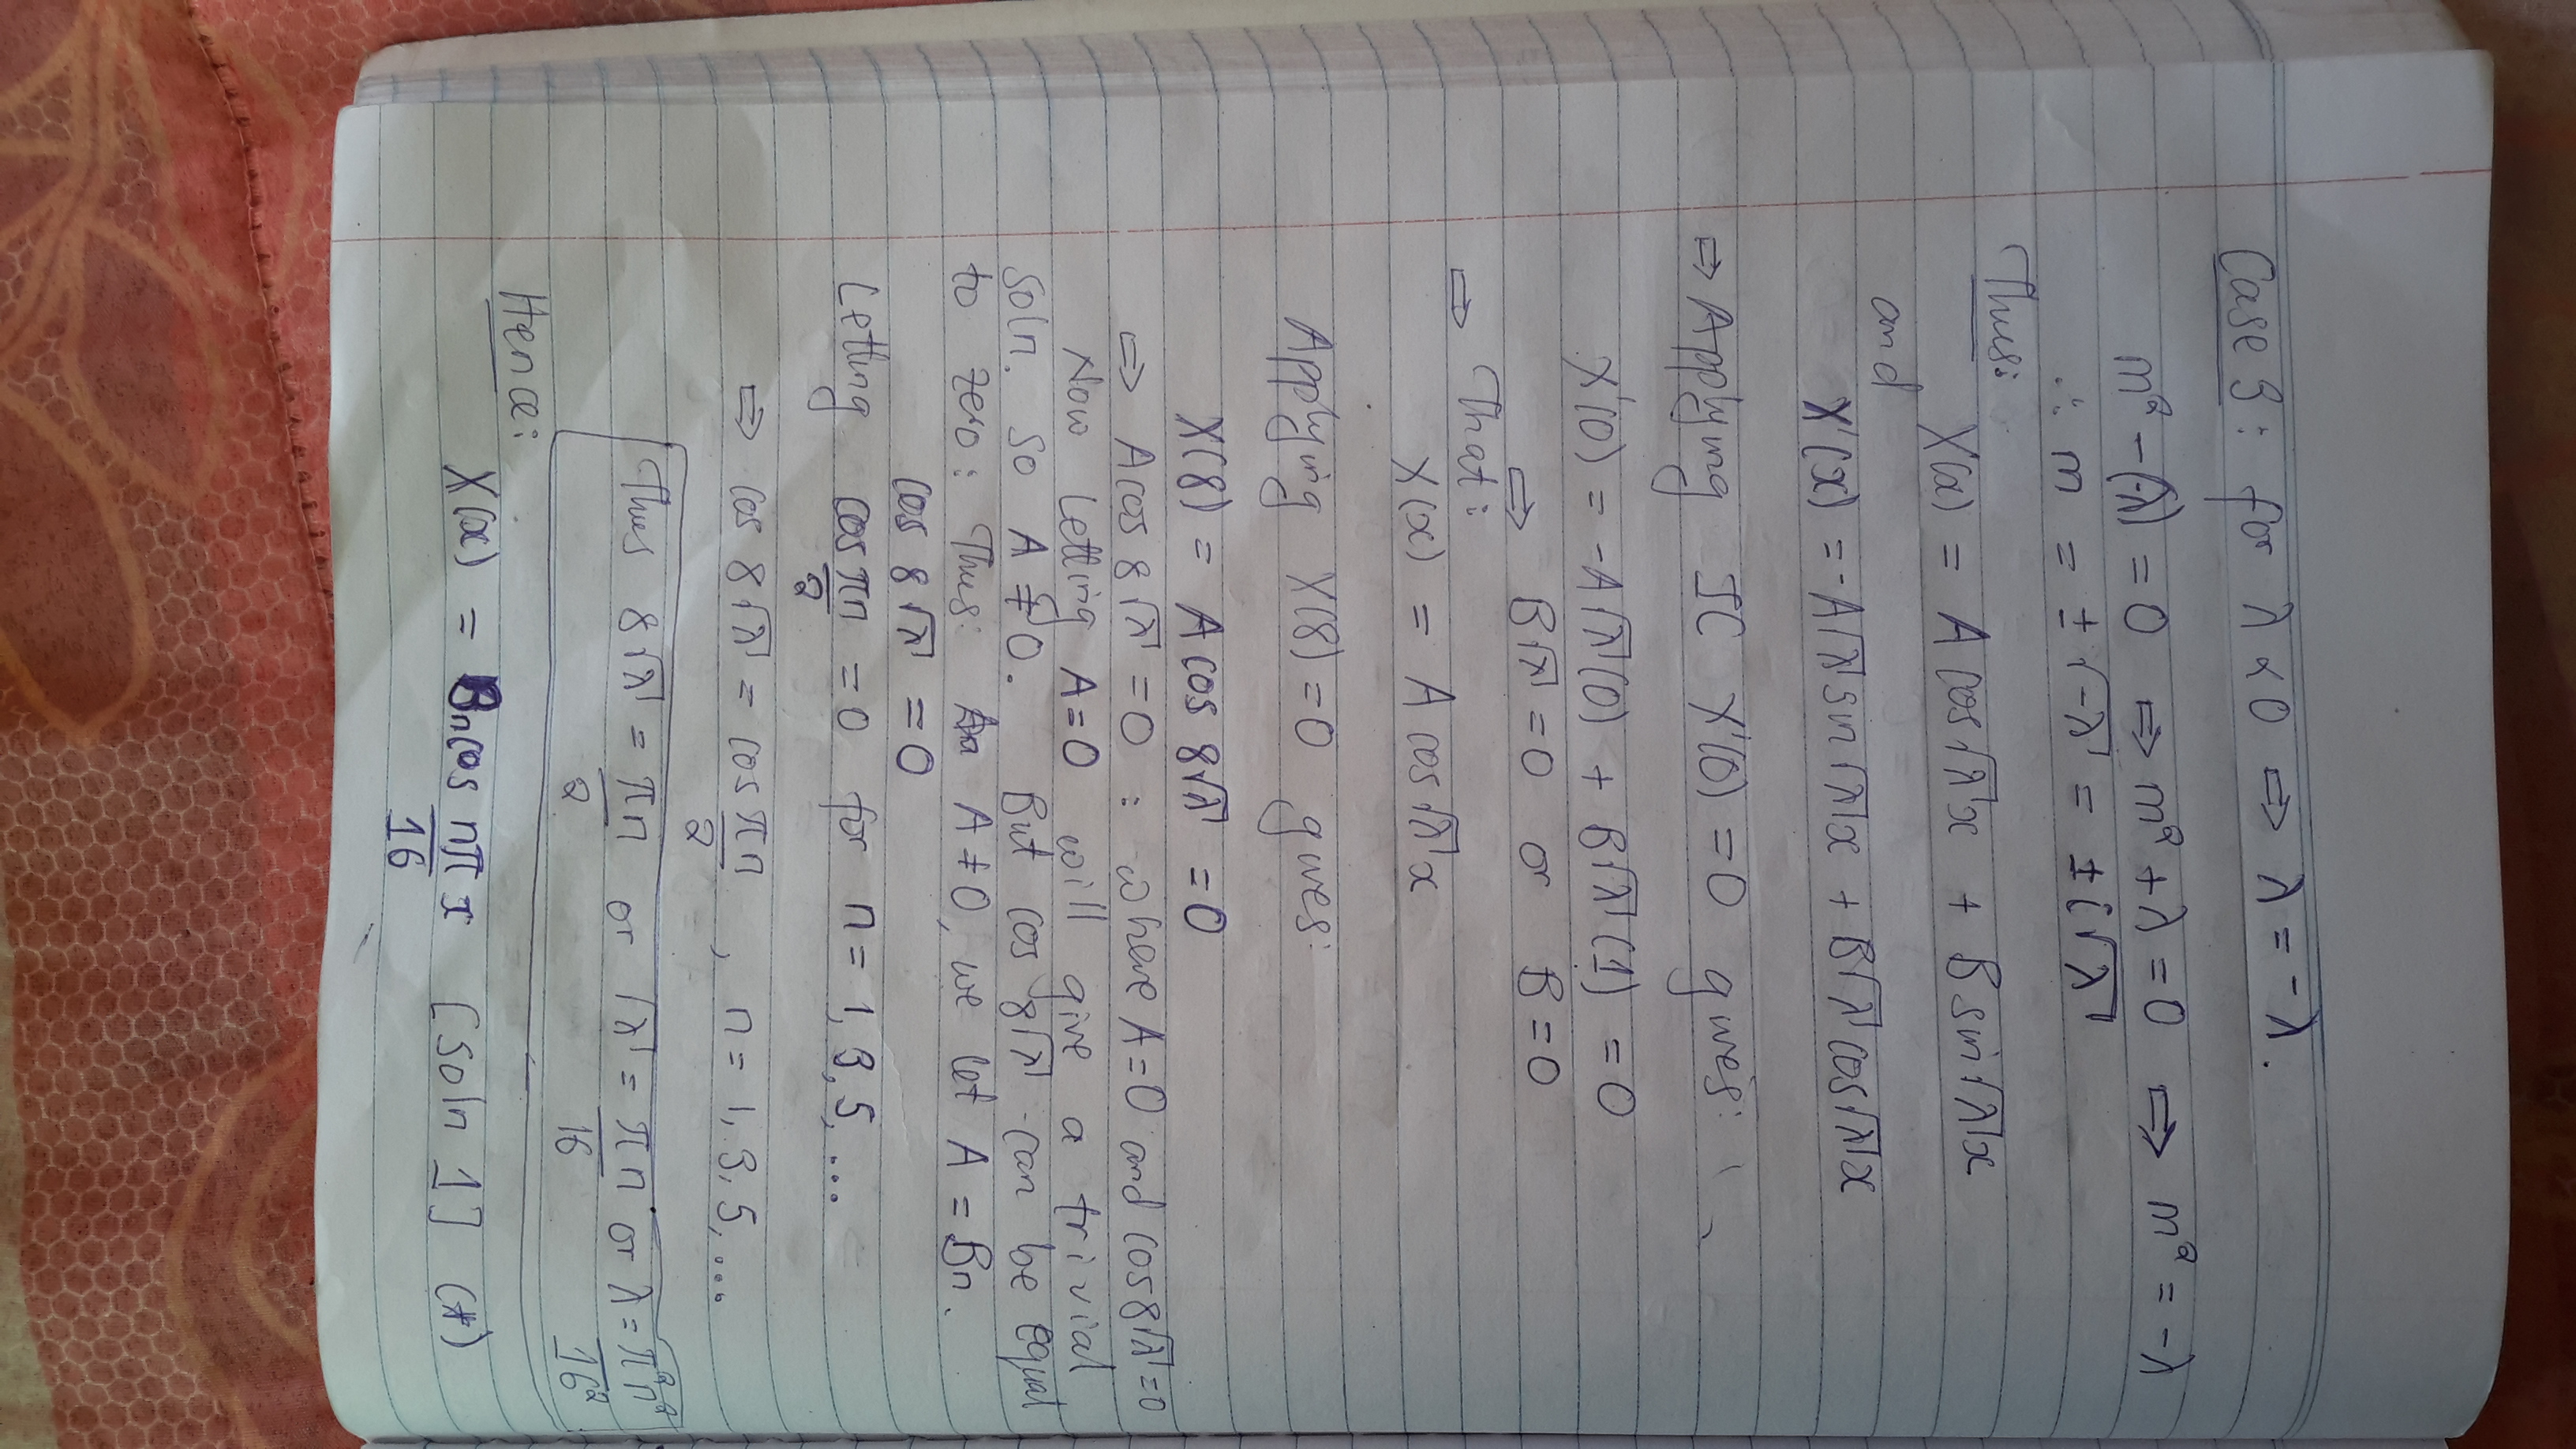 Case 3: for λ < 0 ⇒ λ = -λ.
m² - (-λ) = 0 ⇒ m² + λ = 0 ⇒ m² = -λ
∴ m = ± √-λ = ± i√λ
Thus:
X(x) = A cos √λ x + B sin √λ x
and
X'(x) = -A√λ sin √λ x + B√λ cos √λ x
⇒ Applying IC X'(0) = 0 gives:
X'(0) = -A√λ (0) + B√λ (1) = 0
⇒ B√λ = 0 or B = 0
⇒ That:
X(x) = A cos √λ x
Applying X(8) = 0 gives:
X(8) = A cos 8√λ = 0
⇒ A cos 8√λ = 0 : where A = 0 and cos 8√λ = 0
Now Letting A = 0 will give a trivial
soln. So A ≠ 0. But cos 8√λ can be equal
to zero: Thus: A ≠ 0, we let A = Bn.
cos 8√λ = 0
Letting cos πn/2 = 0 for n = 1, 3, 5, ...
⇒ cos 8√λ = cos πn/2 , n = 1, 3, 5, ...
Thus 8√λ = πn/2 or √λ = πn/16 or λ = π²n²/16²
Hence:
X(x) = Bn cos nπ/16 x [soln 1] (*)